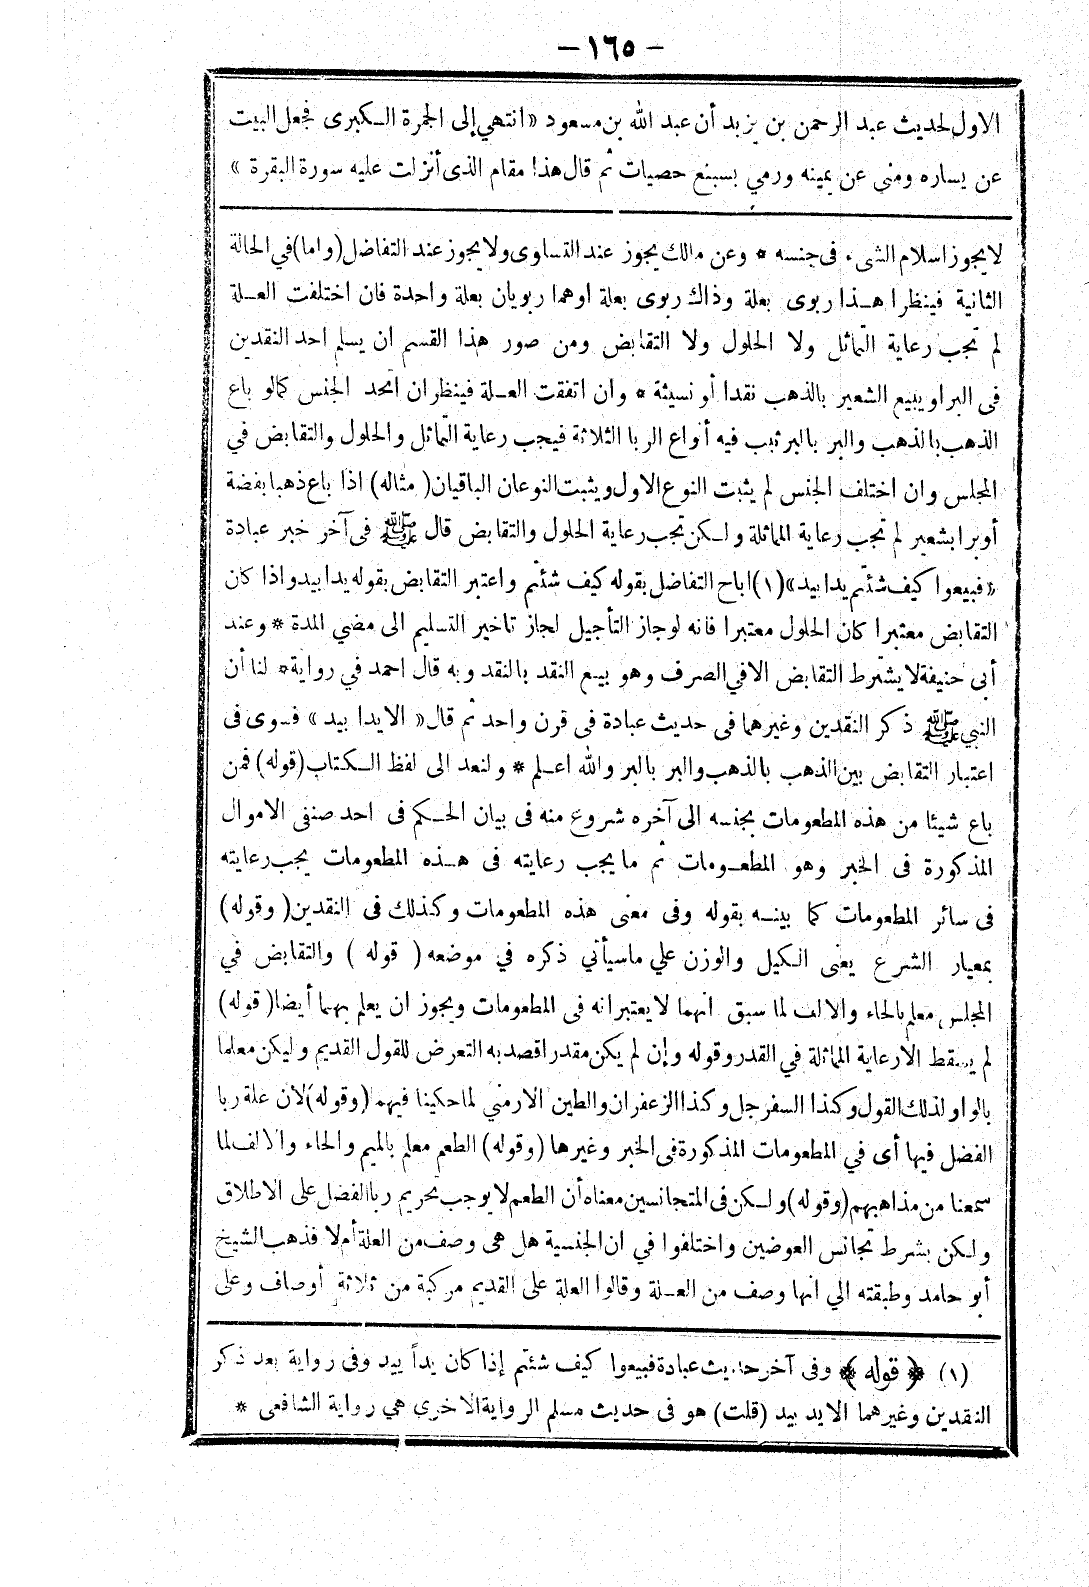 — ١٦٥ —
الاول لحديث عبد الرحمن بن يزيد أن عبد الله بن مسعود «انتهي إلى الجمرة الكبرى فجعل البيت
عن يساره ومنى عن يمينه ورمي بسبع حصيات ثم قال هذا مقام الذى أنزلت عليه سورة البقرة »
لا يجوز اسلام الشىء فى جنسه * وعن مالك يجوز عند التساوى ولا يجوز عند التفاضل (واما) في الحالة
الثانية فينظر اهذا ربوى بعلة وذاك ربوى بعلة اوهما ربويان بعلة واحدة فان اختلفت العلة
لم تجب رعاية التماثل ولا الحلول ولا التقابض ومن صور هذا القسم ان يسلم احد النقدين
فى البر او يبيع الشعير بالذهب نقدا أو نسيئة * وان اتفقت العلة فينظر ان اتحد الجنس كما لو باع
الذهب بالذهب والبر بالبر ثبت فيه أنواع الربا الثلاثة فيجب رعاية التماثل والحلول والتقابض في
المجلس وان اختلف الجنس لم يثبت النوع الاول ويثبت النوعان الباقيان (مثاله) اذا باع ذهبا بفضة
أو برا بشعير لم تجب رعاية المماثلة ولكن تجب رعاية الحلول والتقابض قال ﷺ فى آخر خبر عبادة
«فبيعوا كيف شئتم يدا بيد» (١) اباح التفاضل بقوله كيف شئتم واعتبر التقابض بقوله يدا بيد واذا كان
التقابض معتبرا كان الحلول معتبرا فانه لو جاز التأجيل لجاز تاخير التسليم الى مضي المدة * وعند
أبى حنيفة لا يشترط التقابض الا في الصرف وهو بيع النقد بالنقد وبه قال احمد في رواية * لنا أن
النبي ﷺ ذكر النقدين وغيرهما فى حديث عبادة فى قرن واحد ثم قال « الا يدا بيد » فسوى فى
اعتبار التقابض بين الذهب بالذهب والبر بالبر والله اعلم * ولنعد الى لفظ الكتاب (قوله) فمن
باع شيئا من هذه المطعومات بجنسه الى آخره شروع منه فى بيان الحكم فى احد صنفى الاموال
المذكورة فى الخبر وهو المطعومات ثم ما يجب رعايته فى هذه المطعومات يجب رعايته
فى سائر المطعومات كما بينه بقوله وفى معنى هذه المطعومات وكذلك فى النقدين (وقوله)
بمعيار الشرع يعنى الكيل والوزن علي ما سيأتي ذكره في موضعه ( قوله ) والتقابض في
المجلس معلم بالحاء والالف لما سبق انهما لا يعتبرانه فى المطعومات ويجوز ان يعلم بهما أيضا (قوله)
لم يسقط الا رعاية المماثلة في القدر وقوله وإن لم يكن مقدرا قصد به التعرض للقول القديم وليكن معلما
بالواو لذلك القول وكذا السفرجل وكذا الزعفران والطين الارمني لما حكينا فيهما (وقوله) لان علة ربا
الفضل فيها أى في المطعومات المذكورة فى الخبر وغيرها (وقوله) الطعم معلم بالميم والحاء والالف لما
سمعنا من مذاهبهم (وقوله) ولكن فى المتجانسين معناه أن الطعم لا يوجب تحريم ربا الفضل على الاطلاق
ولكن بشرط تجانس العوضين واختلفوا في ان الجنسية هل هى وصف من العلة أم لا فذهب الشيخ
أبو حامد وطبقته الي انها وصف من العلة وقالوا العلة على القديم مركبة من ثلاثة أوصاف وعلى
(١) ﴿ قوله ﴾ وفى آخر حديث عبادة فبيعوا كيف شئتم إذا كان يداً بيد وفى رواية بعد ذكر
النقدين وغيرهما الا يد بيد (قلت) هو فى حديث مسلم الرواية الاخرى هي رواية الشافعى *